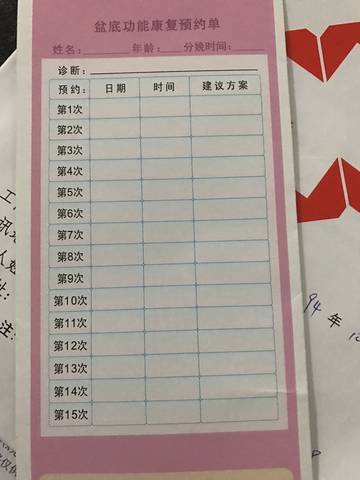 盆底功能康复预约单
姓名：________ 年龄：____ 分娩时间：________
诊断：
预约： 日期 时间 建议方案
第1次
第2次
第3次
第4次
第5次
第6次
第7次
第8次
第9次
第10次
第11次
第12次
第13次
第14次
第15次
工
讯
人
址：
注：
94 年 10